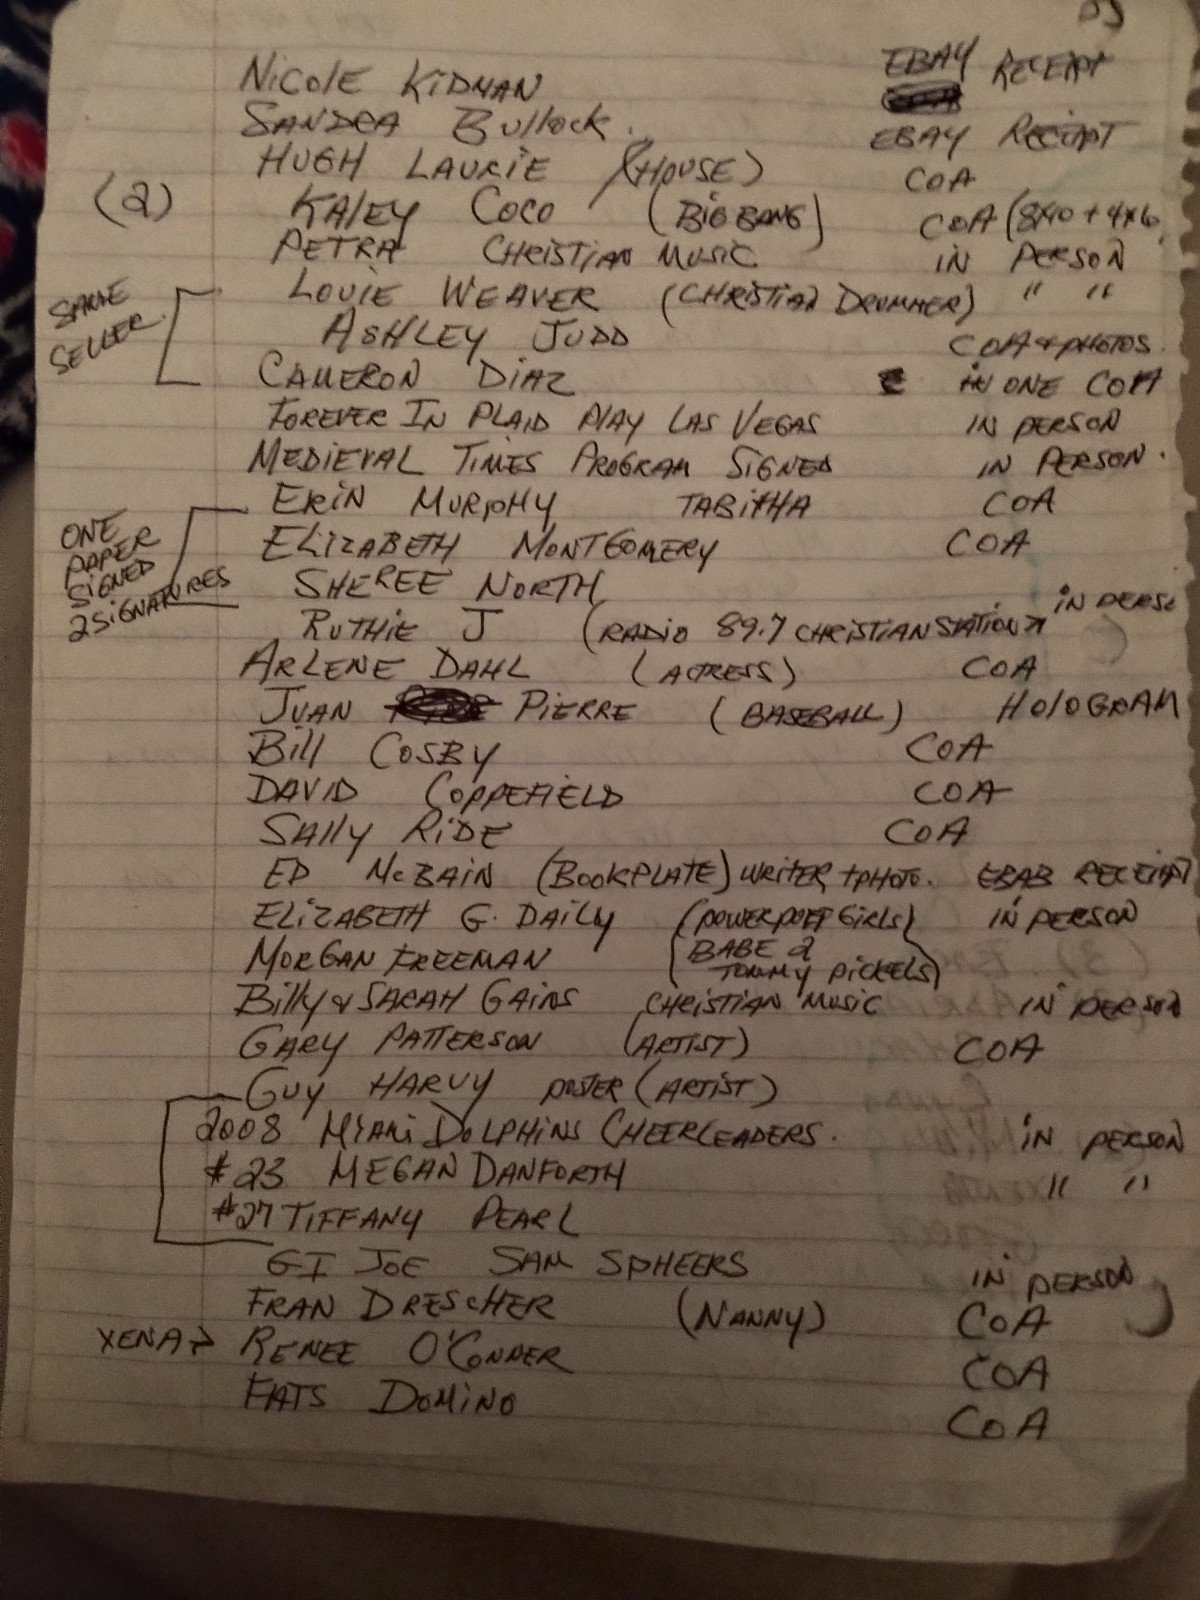 NICOLE KIDMAN EBAY RECEIPT
SANDRA BULLOCK. EBAY RECEIPT
HUGH LAURIE (HOUSE) COA
(2) KALEY COCO (BIG BANG) COA (8X10 + 4X6
PETRA CHRISTIAN MUSIC IN PERSON
SAME SELLER. LOUIE WEAVER (CHRISTIAN DRUMMER) " "
ASHLEY JUDD COA & PHOTOS
CAMERON DIAZ IN ONE COA
FOREVER IN PLAID PLAY LAS VEGAS IN PERSON
MEDIEVAL TIMES PROGRAM SIGNED IN PERSON.
ERIN MURPHY TABITHA COA
ONE PAPER SIGNED 2 SIGNATURES ELIZABETH MONTGOMERY COA
SHEREE NORTH
RUTHIE J (RADIO 89.7 CHRISTIAN STATION) IN PERSO
ARLENE DAHL (ACTRESS) COA
JUAN PIERRE (BASEBALL) HOLOGRAM
BILL COSBY COA
DAVID COPPEFIELD COA
SALLY RIDE COA
ED McBAIN (BOOKPLATE) WRITER + PHOTO. EBAB RECEIPT
ELIZABETH G. DAILY (POWERPUFF GIRLS) IN PERSON
MORGAN FREEMAN (BABE 2
TOMMY PICKELS)
BILLY & SARAH GAINS CHRISTIAN MUSIC IN PERSON
GARY PATTERSON (ARTIST) COA
GUY HARVY POSTER (ARTIST)
2008 MIAMI DOLPHINS CHEERLEADERS. IN PERSON
#23 MEGAN DANFORTH " "
#27 TIFFANY PEARL
GI JOE SAM SPHEERS IN PERSON
FRAN DRESCHER (NANNY) COA
XENA → RENEE O'CONNER COA
FATS DOMINO COA